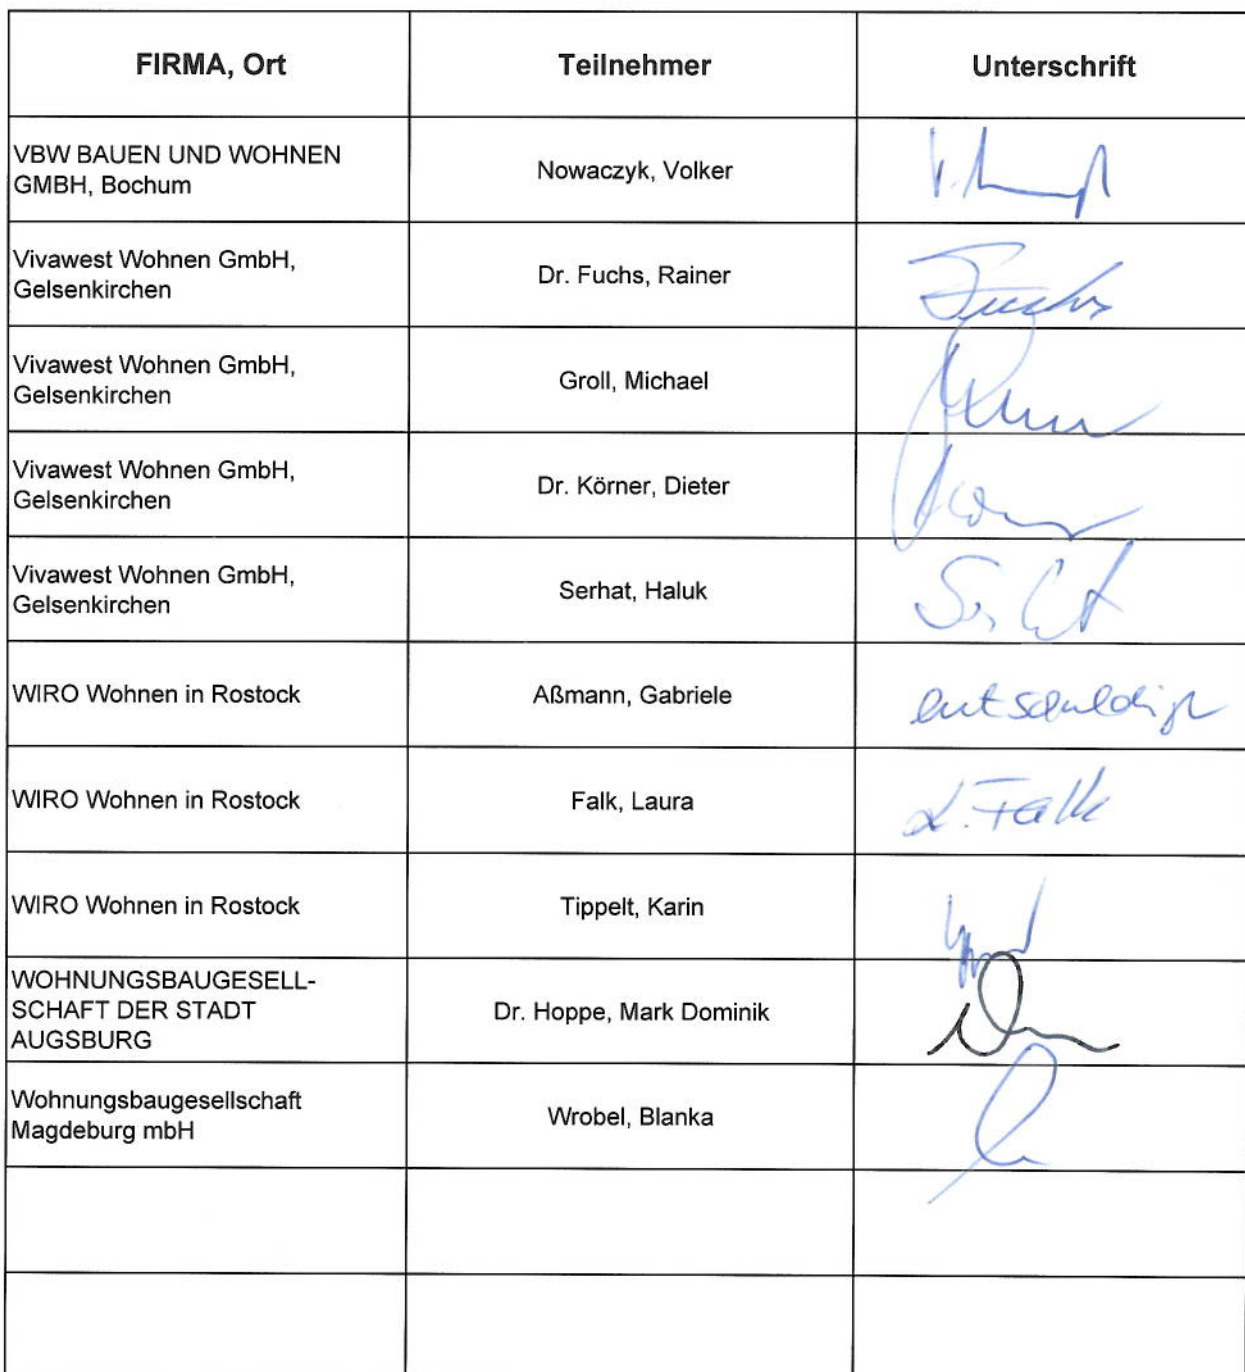 FIRMA, Ort
Teilnehmer
Unterschrift
VBW BAUEN UND WOHNEN
GMBH, Bochum
Nowaczyk, Volker
Vivawest Wohnen GmbH,
Gelsenkirchen
Dr. Fuchs, Rainer
Fuchs
Vivawest Wohnen GmbH,
Gelsenkirchen
Groll, Michael
Vivawest Wohnen GmbH,
Gelsenkirchen
Dr. Körner, Dieter
Vivawest Wohnen GmbH,
Gelsenkirchen
Serhat, Haluk
WIRO Wohnen in Rostock
Aßmann, Gabriele
entschuldigt
WIRO Wohnen in Rostock
Falk, Laura
L. Falk
WIRO Wohnen in Rostock
Tippelt, Karin
WOHNUNGSBAUGESELL-
SCHAFT DER STADT
AUGSBURG
Dr. Hoppe, Mark Dominik
Wohnungsbaugesellschaft
Magdeburg mbH
Wrobel, Blanka